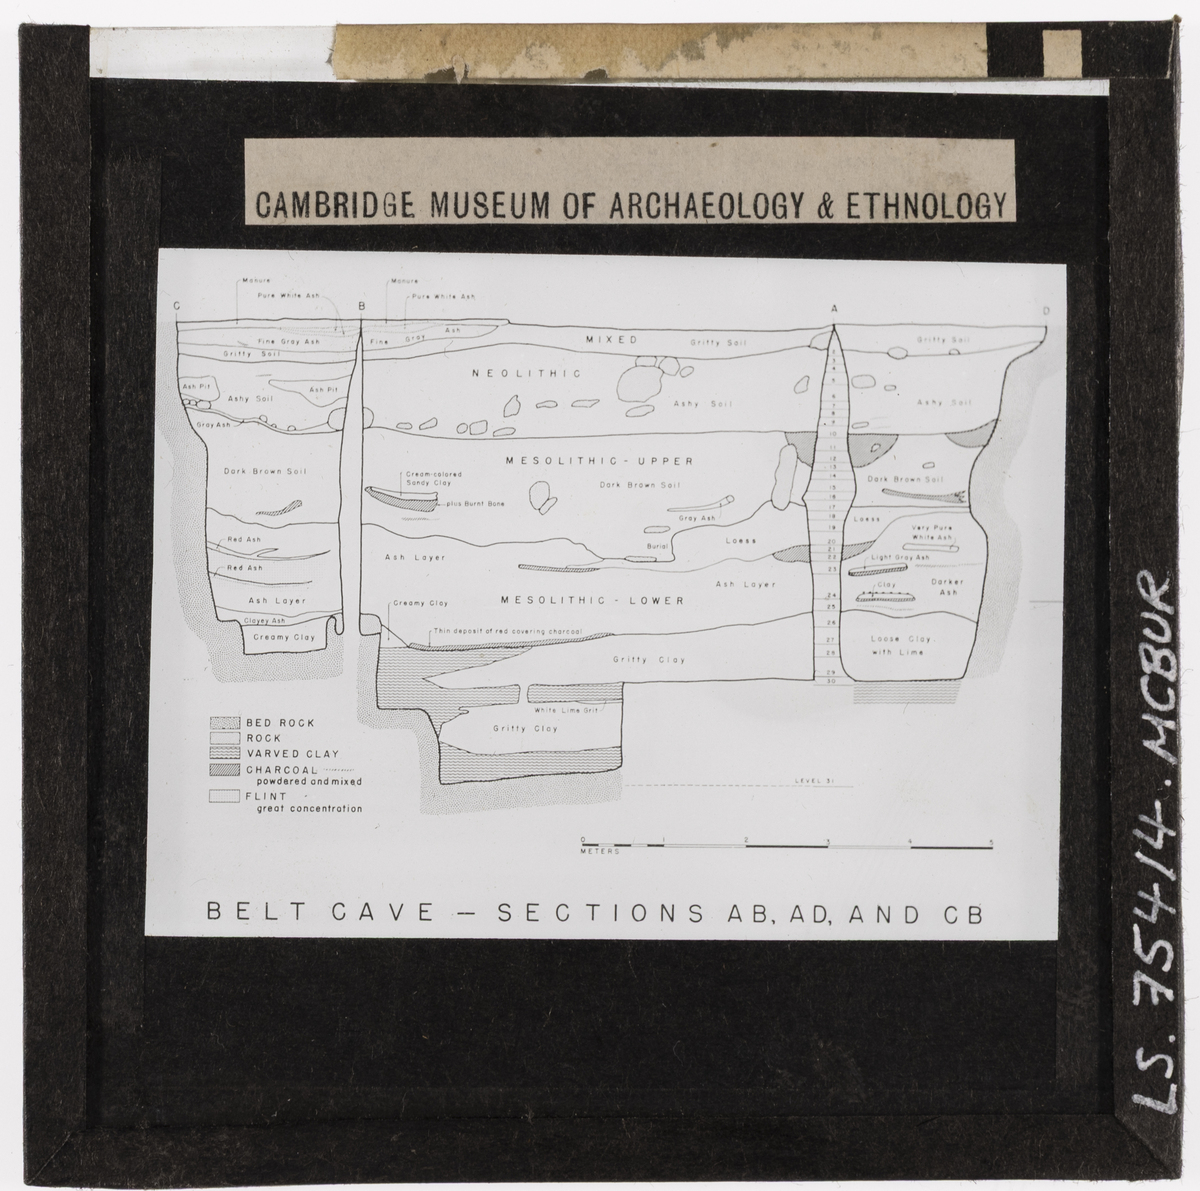 CAMBRIDGE MUSEUM OF ARCHAEOLOGY & ETHNOLOGY
Manure
Manure
Pure White Ash
Pure White Ash
C
B
A
D
Fine Gray Ash
Fine Gray Ash
MIXED
Gritty Soil
Gritty Soil
Gritty Soil
NEOLITHIC
Ash Pit
Ash Pit
Ashy Soil
Ashy Soil
Ashy Soil
Gray Ash
MESOLITHIC - UPPER
Dark Brown Soil
Cream-colored
Sandy Clay
plus Burnt Bone
Dark Brown Soil
Dark Brown Soil
Gray Ash
Loess
Very Pure
White Ash
Red Ash
Burial
Loess
Ash Layer
Light Gray Ash
Red Ash
Ash Layer
Clay
Darker
Ash
Ash Layer
MESOLITHIC - LOWER
Creamy Clay
Clayey Ash
Creamy Clay
Thin deposit of red covering charcoal
Loose Clay
with Lime
Gritty Clay
White Lime Grit
Gritty Clay
2
3
4
5
6
7
8
9
10
11
12
13
14
15
16
17
18
19
20
21
22
23
24
25
26
27
28
29
30
BED ROCK
ROCK
VARVED CLAY
CHARCOAL
powdered and mixed
FLINT
great concentration
LEVEL 31
0 1 2 3 4 5
METERS
BELT CAVE — SECTIONS AB, AD, AND CB
LS. 75414. MCBUR